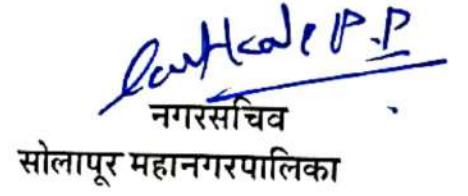 P.P
नगरसचिव
सोलापूर महानगरपालिका